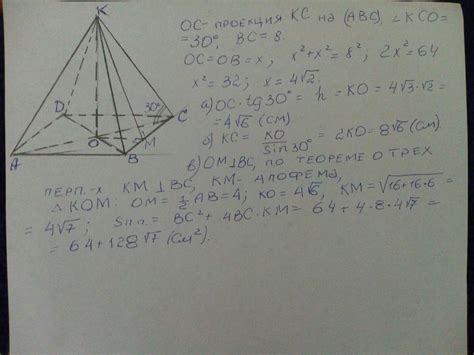 K
D
30°
C
O
M
A
B
OC- проекция KC на (ABC), ∠KCO=
=30°, BC=8.
OC=OB=x, x²+x²=8²; 2x²=64
x²=32; x=4√2.
а) OC·tg30°=h=KO=4√3·√2=
=4√6 (см).
б) KC=KO/sin30°=2KO=8√6 (см)
в) OM⊥BC, по теореме о трех
перп-х KM⊥BC, KM-апофема,
△KOM: OM=1/2AB=4; KO=4√6, KM=√(16+16·6)=
=4√7; Sп.п.=BC²+4BC·KM=64+4·8·4√7=
=64+128√7 (см²).